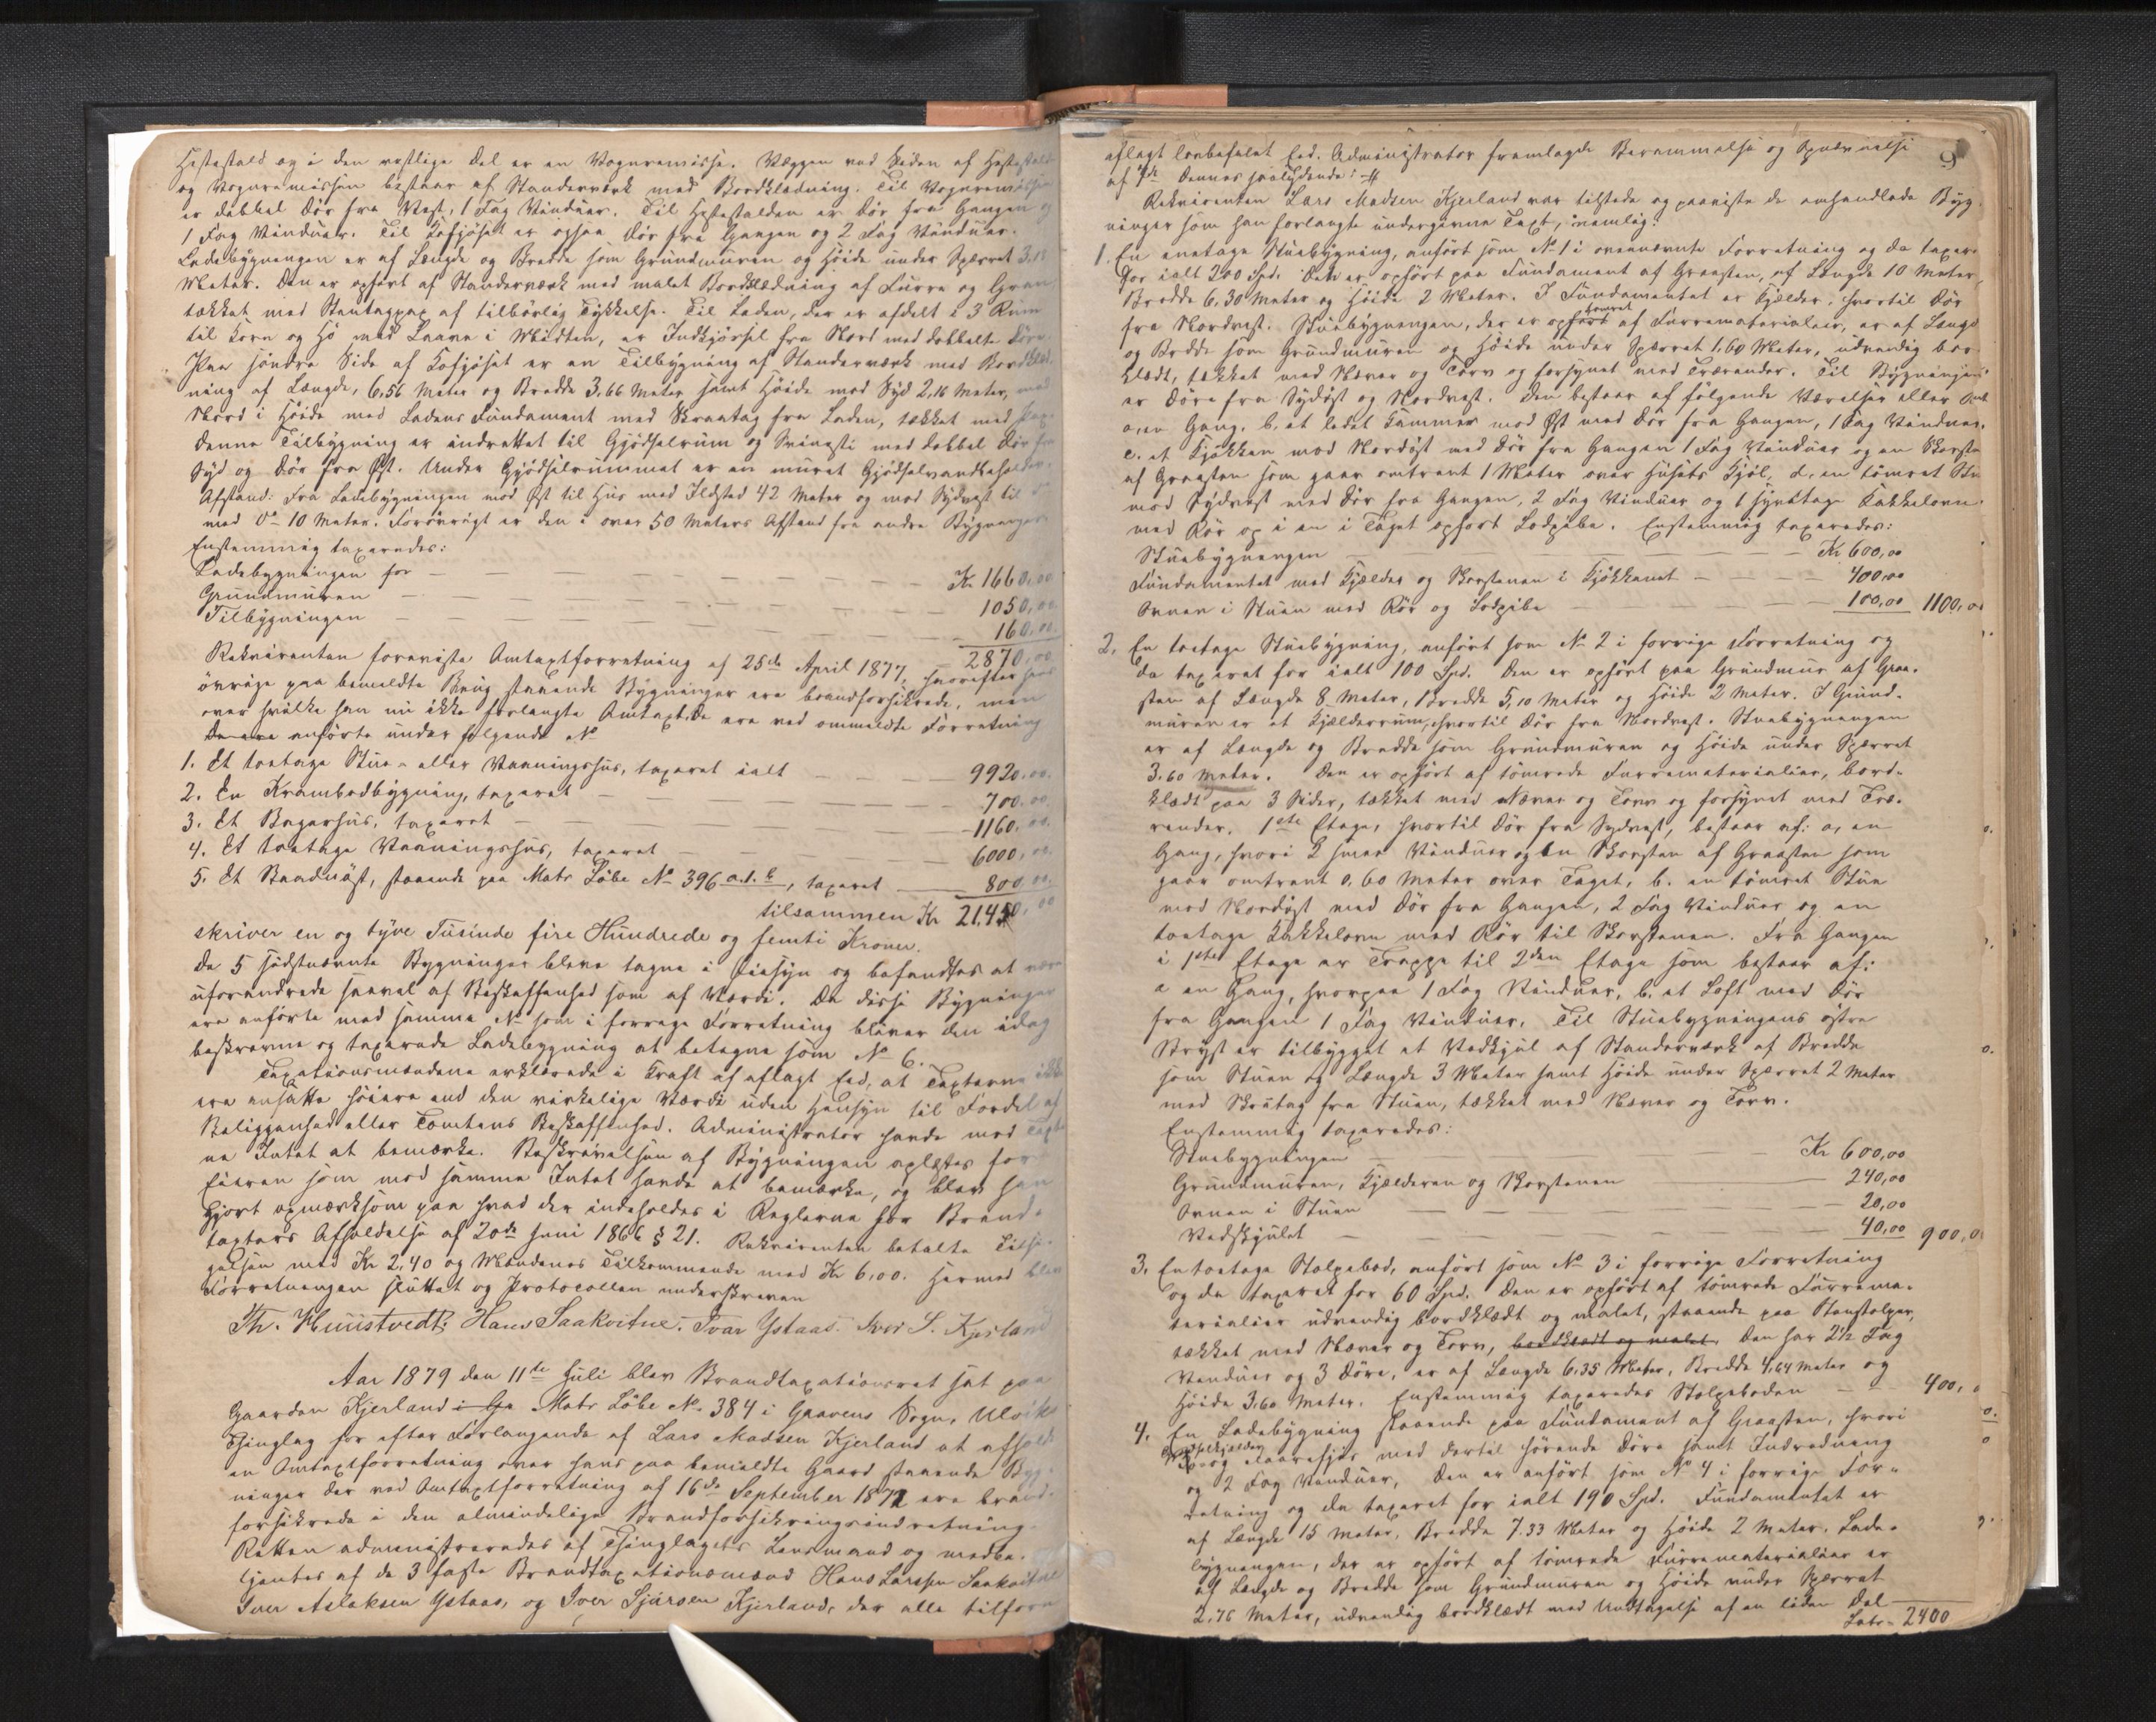 Hestestald og i den vestlige Del er en Vognremisse. Væggen ved Siden af Hestestald
og Vognremissen bestaar af Standerværk med Bordklædning. Til Vognremissen
er dobbel Dör fra Vest, 1 Fag Vinduer. Til Hestestalden er Dör fra Gangen og
1 Fag Vinduer. Til Kofjöset er ogsaa Dör fra Gangen og 2 Fag Vinduer.
Ladebygningen er af Længde og Bredde som Grundmuren og Höide under Spærret 3,
Meter. Den er opfört af Standerværk med malet Bordklædning af Furre og Gran
tækket med Stentagpap af tilbörlig Tykkelse. Til Laden, der er afdelt i 3 Rum
til Korn og Hö med Laave i Midten, er Indkjörsel fra Nord med dobbelte Döre
Paa söndre Side af Kofjöset er en Tilbygning af Standerværk med Bordklæd-
ning af Længde, 6,56 Meter og Bredde 3,66 Meter samt Höide mod Syd 2,16 Meter, mod
Nord i Höide med Ladens Fundament med Skraatag fra Laden, tækket med
Denne Tilbygning er indrettet til Gjödselrum og Svinesti med dobbel Dör fra
Syd og Dör fra Öst. Under Gjödselrummet er en muret Gjödselvandbeholder.
Afstand: Fra Ladebygningen mod Öst til Hus med Ildsted 42 Meter og mod Sydvest til
med Do 10 Meter. Forövrigt er den i over 50 Meters Afstand fra andre Bygninger
Enstemmig taxeredes:
Ladebygningen for — Kr 1660,00
Grundmuren — 1050,00
Tilbygningen — 160,00
2870,00
Rekvirenten foreviste Omtaxtforretning af 25de April 1877, hvorefter hans
övrige paa bemeldte Brug staaende Bygninger ere brandforsikrede, men
over hvilke han nu ikke forlangte Omtaxt. De ere ved ommeldte Forretning
De ere anförte under fölgende No
1. Et toetage Stue- eller Vaaningshus, taxeret ialt — 9920,00.
2. En Krambodbygning, taxeret — 700,00.
3. Et Bagerhus, taxeret — 1160,00.
4. Et toetage Vaaningshus, taxeret — 6000,00.
5. Et Baadnöst, staaende paa Matr Löbe No 396 a.1.b, taxeret — 800,00.
tilsammen Kr 21,450,00
skriver en og tyve Tusinde fire Hundrede og femti Kroner.
De 5 sidstnævnte Bygninger bleve tagne i Öiesyn og befandtes at være
uforandrede saavel af Beskaffenhed som af Værdi. Da disse Bygninger
ere anförte med samme No som i forrige Forretning bliver den idag
beskrevne og taxerede Ladebygning at betegne som No 6.
Taxationsmændene erklærede i Kraft af aflagt Eed, at Taxterne ikke
ere ansatte höiere end den virkelige Værdi uden Hensyn til Fordel af
Beliggenhed eller Tomtens Beskaffenhed. Administrator havde mod Taxter-
ne Intet at bemærke. Beskrivelsen af Bygningen oplæstes for
Eieren som mod samme Intet havde at bemærke, og blev han
gjort opmærksom paa hvad der indeholdes i Reglerne for Brand-
taxters Afholdelse af 20de Juni 1866 § 21. Rekvirenten betalte Tilsi-
gelsen med Kr 2,40 og Mændenes Tilkommende med Kr 6,00. Hermed blev
Forretningen sluttet og Protocollen underskreven
Th. Huustvedt. Hans Saakvitne. Ivar Ystaas. Iver S. Kjerland
Aar 1879 den 11te Juli blev Brandtaxationsret sat paa
Gaarden Kjerland i Gr Matr Löbe No. 384 i Graavens Sogn, Ulviks
Thinglag for efter Forlangende af Lars Madsen Kjerland at afholde
en Omtaxtforretning over hans paa bemeldte Gaard staaende Byg-
ninger der ved Omtaxtforretning af 16de September 1872 ere brand-
forsikrede i den almindelige Brandforsikringsindretning.
Retten administreredes af Thinglagets Lensmand og medbe-
tjentes af de 3 faste Brandtaxationsmænd Hans Larssen Saakvitne
Iver Aslaksen Ystaas, og Iver Sjursen Kjerland, der alle tilforn
9
aflagt lovbefalet Eed. Administrator fremlagde Berammelse og Opnævnelse
af 7de Dennes saalydende:
Rekvirenten Lars Madsen Kjerland var tilstede og paaviste de omhandlede Byg-
ninger som han forlangte undergivne Taxt, nemlig:
1. En enetage Stuebygning, anfört som No 1 i ovennævnte Forretning og da taxere
for ialt 200 Spd. Den er opfört paa Fundament af Graasten, af Længde 10 Meter,
Bredde 6,30 Meter og Höide 2 Meter. I Fundamentet er Kjelder, hvortil Dör
fra Nordvest. Stuebygningen, der er opfört tömret af Furrematerialier, er af Længde
og Bredde som Grundmuren og Höide under Spærret 1,60 Meter, udvendig bor-
klædt, tækket med Næver og Torv og forsynet med Trærender. Til Bygningen
er Döre fra Sydöst og Nordvest. Den bestaar af fölgende Værelser eller
a. en Gang, b. et lidet Kammer mod Öst med Dör fra Gangen, 1 Fag Vinduer,
c. et Kjökken mod Nordöst med Dör fra Gangen 1 Fag Vinduer og en Skorsten
af Graasten som gaar omtrent 1 Meter over Husets Kjöl, d. en tömret Stue
mod Sydvest med Dör fra Gangen, 2 Fag Vinduer og 1 fyretage Kakkelovn
med Rör op i en i Taget opfört Lodpibe. Enstemmig taxeredes:
Stuebygningen — Kr 600,00
Fundamentet med Kjelder og Skorstenen i Kjökkenet — 400,00
Ovnen i Stuen med Rör og Lodpibe — 100,00 1100,00
2. En toetage Stuebygning, anfört som No 2 i forrige Forretning og
da taxeret for ialt 100 Spd. Den er opfört paa Grundmur af Graa-
sten af Længde 8 Meter, Bredde 5,10 Meter og Höide 2 Meter. I Grund-
muren er et Kjælderrum, hvortil Dör fra Nordvest. Stuebygningen
er af Længde og Bredde som Grundmuren og Höide under Spærret
3,60 Meter. Den er opfört af tömrede Furrematerialier, bord-
klædt paa 3 Sider, tækket med Næver og Torv og forsynet med Træ-
render. 1ste Etage, hvortil Dör fra Sydvest, bestaar af: a, en
Gang, hvori 2 smaa Vinduer og en Skorsten af Graasten som
gaar omtrent 0,60 Meter over Taget, b. en tömret Stue
mod Nordöst med Dör fra Gangen, 2 Fag Vinduer og en
toetage Kakkelovn med Rör til Skorstenen. Fra Gangen
i 1ste Etage er Trappe til 2den Etage som bestaar af:
a en Gang, hvorpaa 1 Fag Vinduer, b. et Loft med Dör
fra Gangen 1 Fag Vinduer. Til Stuebygningens östre
Bryst er tilbygget et Vedskjul af Standerværk af Bredde
som Stuen og Længde 3 Meter samt Höide under Spærret 2 Meter
med Skratag fra Stuen, tækket med Næver og Torv.
Enstemmig taxeredes:
Stuebygningen — Kr 600,00
Grundmuren, Kjælderen og Skorstenen — 240,00
Ovnen i Stuen — 20,00
Vedskjulet — 40,00 900,0
3. En toetage Stolpebod, anfört som No 3 i forrige Forretning
og da taxeret for 60 Spd. Den er opfört af tömrede Furrema-
terialier udvendig bordklædt og malet, staaende paa Stenstolper,
tækket med Næver og Torv, bordklædt og malet. Den har 2½ Fag
Vinduer og 3 Döre, er af Længde 6,35 Meter, Bredde 4,64 Meter og
Höide 3,60 Meter. Enstemmig taxeredes Stolpeboden — 400,
4. En Ladebygning staaende paa Fundament af Graasten, hvori
og Faarefjös med dertil hörende Döre samt Indredning
og 2 Fag Vinduer, Den er anfört som No 4 i forrige For-
retning og da taxeret for ialt 190 Spd. Fundamentet er
af Længde 15 Meter, Bredde 7,33 Meter og Höide 2 Meter. Lade-
bygningen, der er opfört af tömrede Furrematerialier er
af Længde og Bredde som Grundmuren og Höide under Spærret
2,76 Meter, udvendig bordklædt med Undtagelse af en liden Del
Latr. 2400